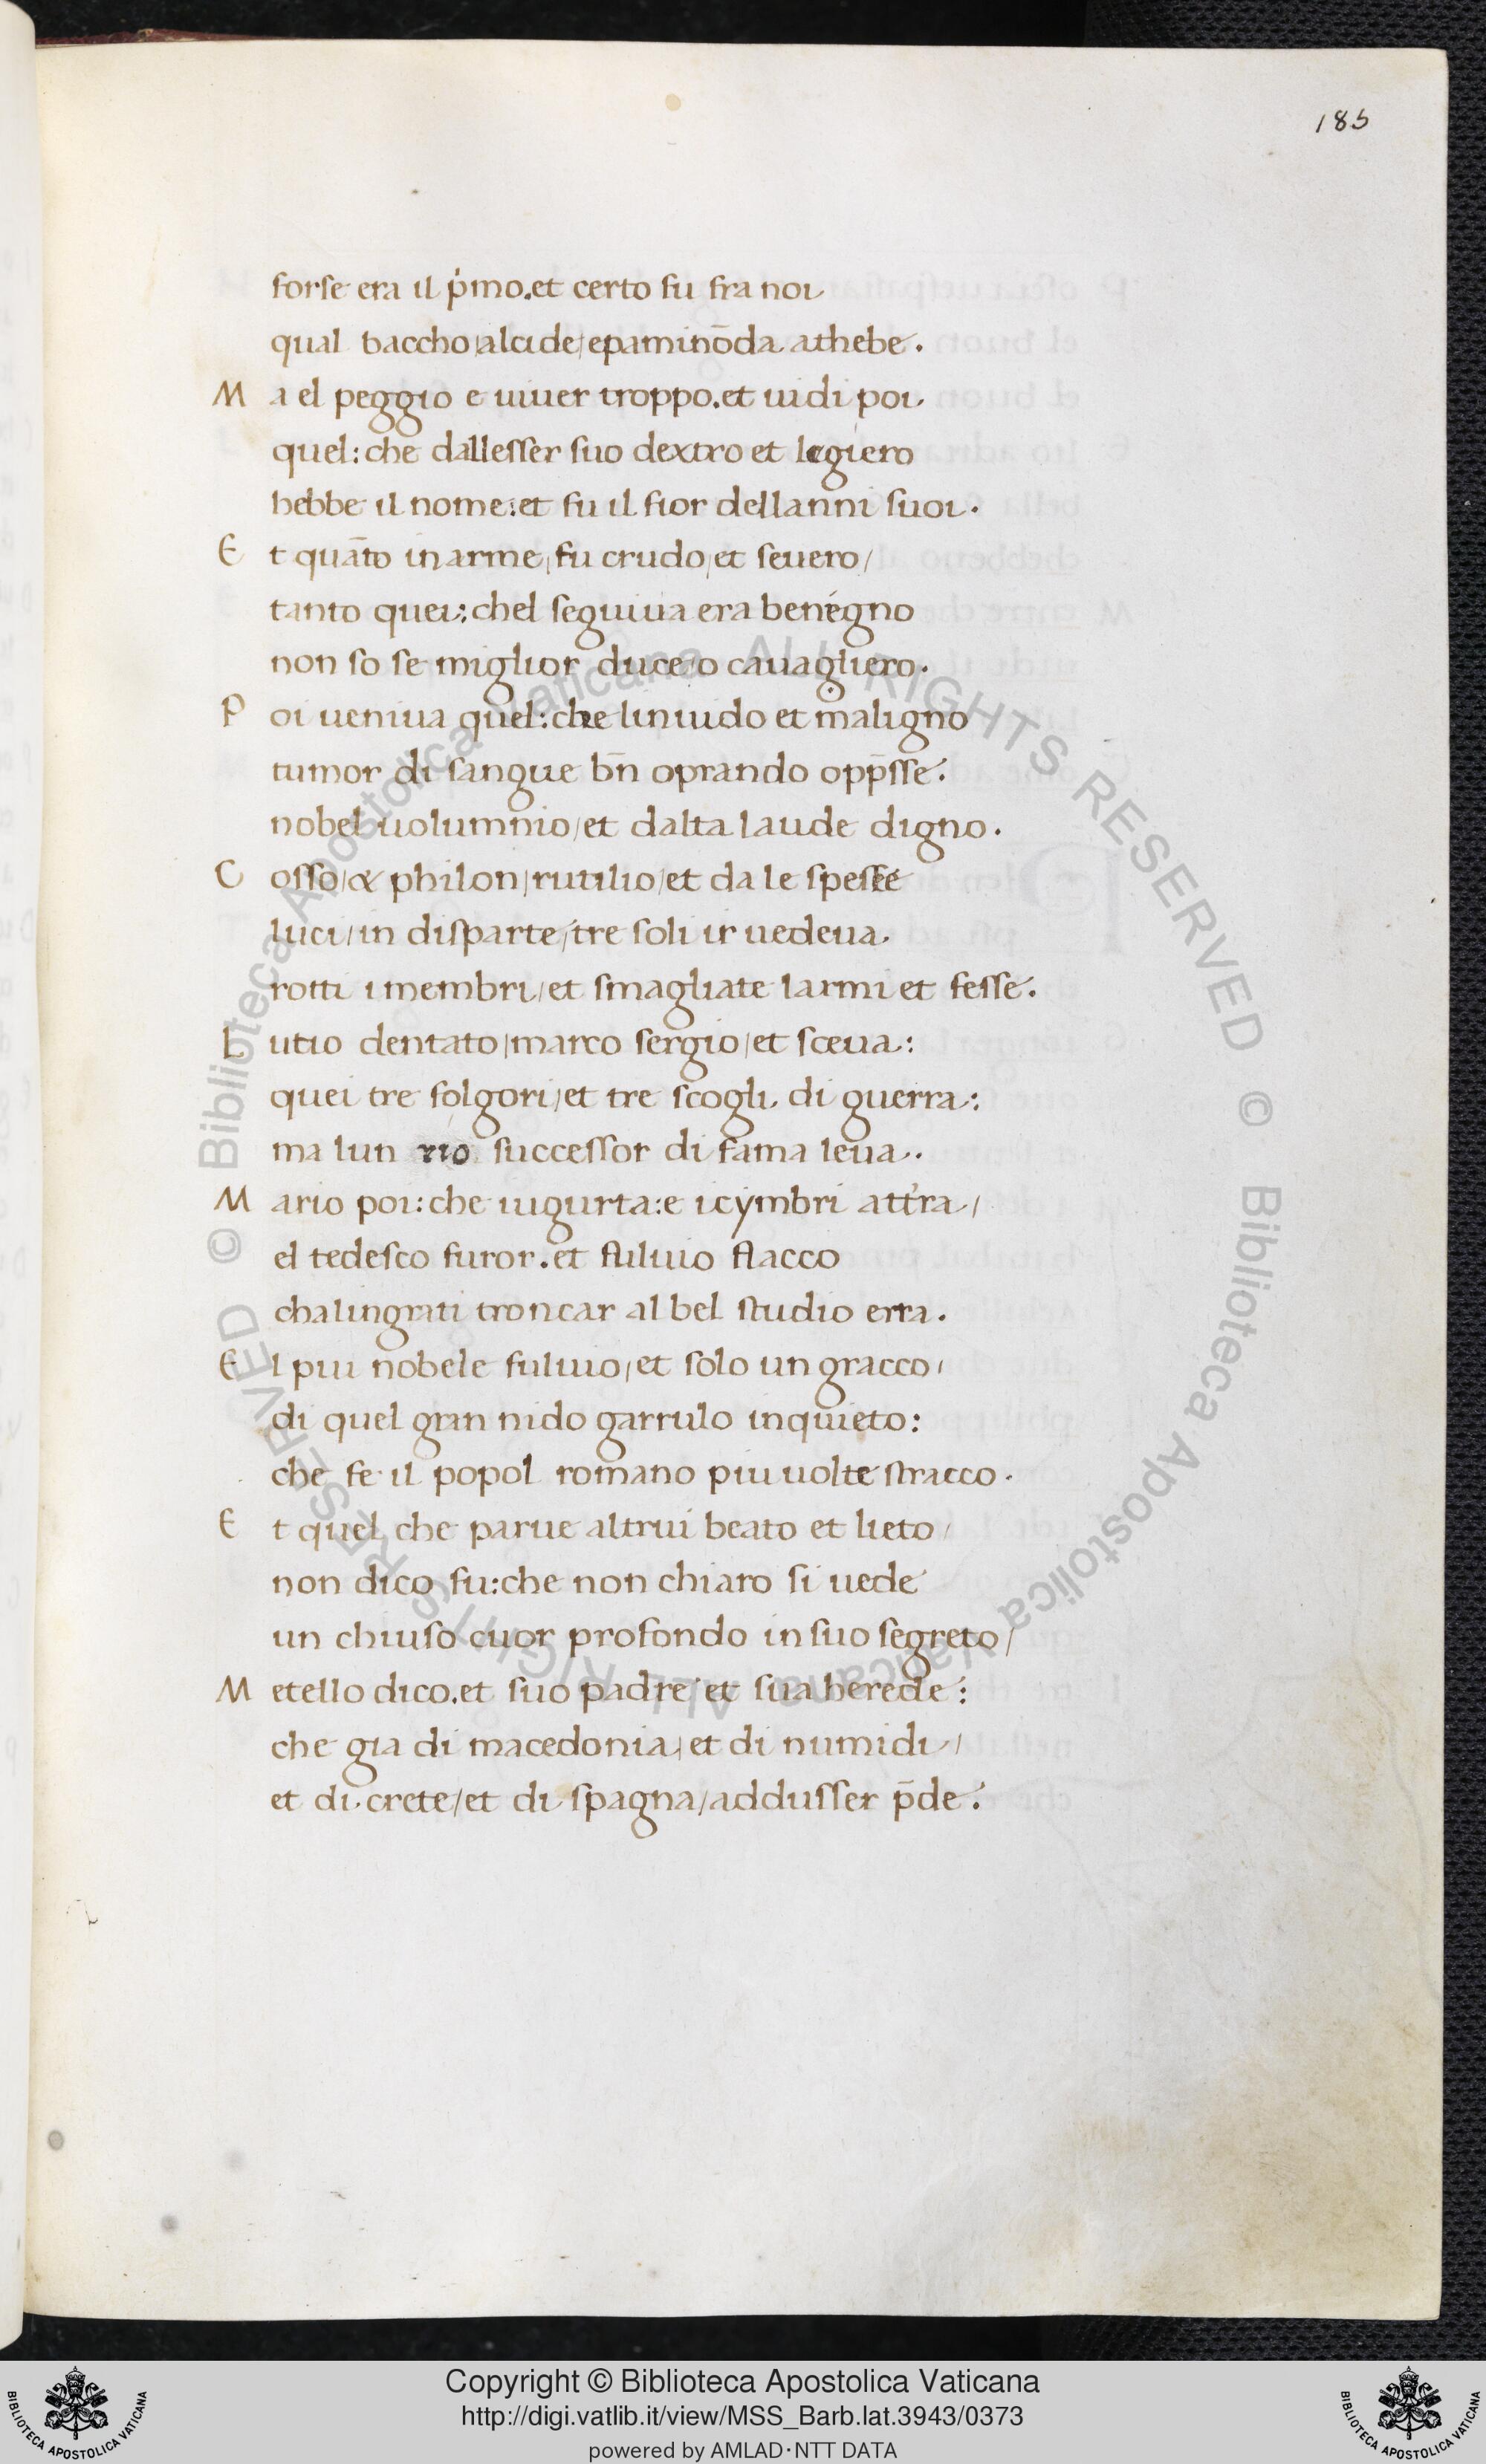 185
forse era il p̍mo.et certo fu fra noi
qual baccho/alcide/epaminōda athebe.
M a el peggio e uiuer troppo.et uidi poi
quel:che dallesser suo dextro et legiero
hebbe il nome:et fu il fior dellanni suoi.
E t quāto in arme/fu crudo/et seuero/
tanto quei:chel seguiua era benegno
non so se miglior duce/o cauagliero.
P oi ueniua quel:che liuiudo et maligno
tumor di sangue bn̄ oprando opp̄sse.
nobel uolumnio/et dalta laude digno.
C osso/& philon/rutilio/et da le spesse
luci/in disparte/tre soli ir uedeua
rotti i membri/et smagliate larmi et fesse.
L utio dentato/marco sergio/et sceua:
quei tre folgori/et tre scogli di guerra:
ma lun rio successor di fama leua.
M ario poi:che iugurta:e i cymbri att̍ra/
el tedesco furor.et fuluio flacco
chalingrati troncar al bel studio erra.
E l piu nobele fuluio/et solo un gracco/
di quel gran nido garrulo inquieto:
che fe il popol romano piu uolte stracco.
E t quel che parue altrui beato et lieto/
non dico fu:che non chiaro si uede
un chiuso cuor profondo in suo segreto/
M etello dico.et suo padre et sua herede:
che gia di macedonia/et di numidi/
et di crete/et di spagna/addusser p̄de.
© Biblioteca Apostolica Vaticana ALL RIGHTS RESERVED © Biblioteca Apostolica Vaticana ALL RIGHTS RESERVED
Copyright © Biblioteca Apostolica Vaticana
http://digi.vatlib.it/view/MSS_Barb.lat.3943/0373
powered by AMLAD·NTT DATA
BIBLIOTECA APOSTOLICA VATICANA
BIBLIOTECA APOSTOLICA VATICANA